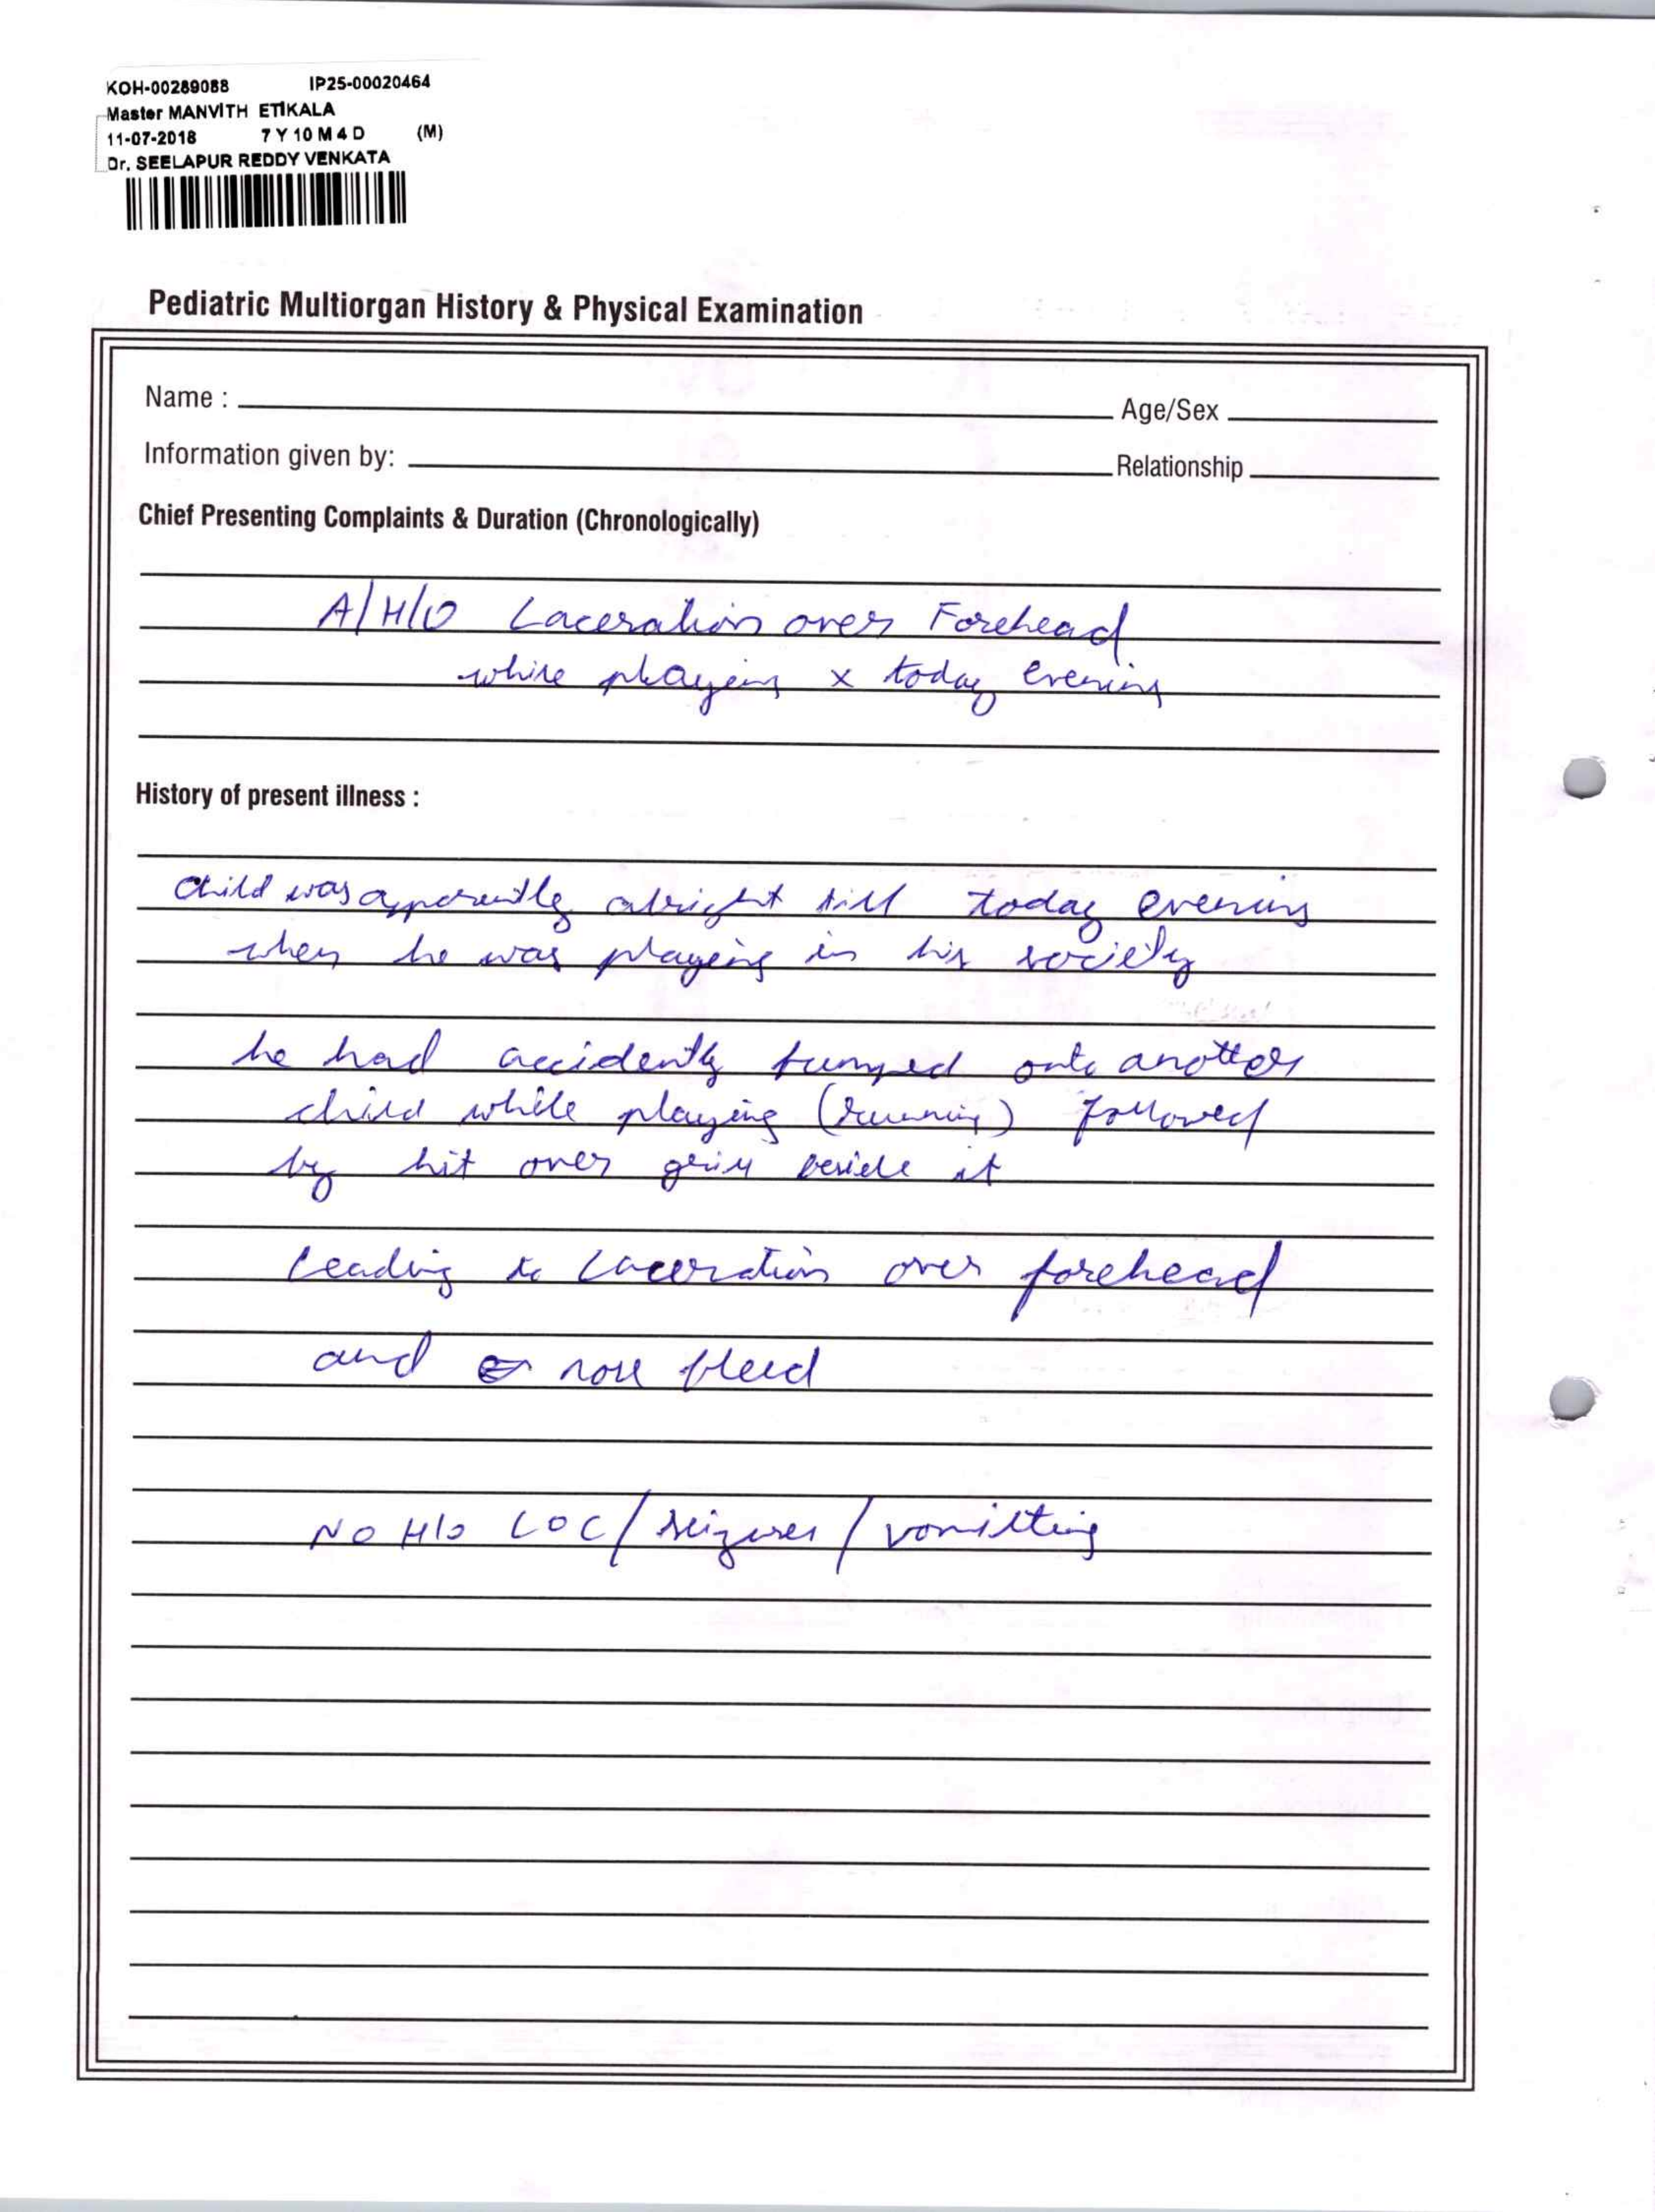 KOH-00289088 IP25-00020464
Master MANVITH ETIKALA
11-07-2018 7 Y 10 M 4 D (M)
Dr. SEELAPUR REDDY VENKATA
Pediatric Multiorgan History & Physical Examination
Name : Age/Sex
Information given by: Relationship
Chief Presenting Complaints & Duration (Chronologically)
A/H/O Laceration over Forehead
while playing x today evening
History of present illness :
Child was apparently alright till today evening
when he was playing in his society
he had accidently bumped onto another
child while playing (running) followed
by hit over grill beside it
leading to laceration over forehead
and nose bleed
NO H/O LOC/seizures/vomitting